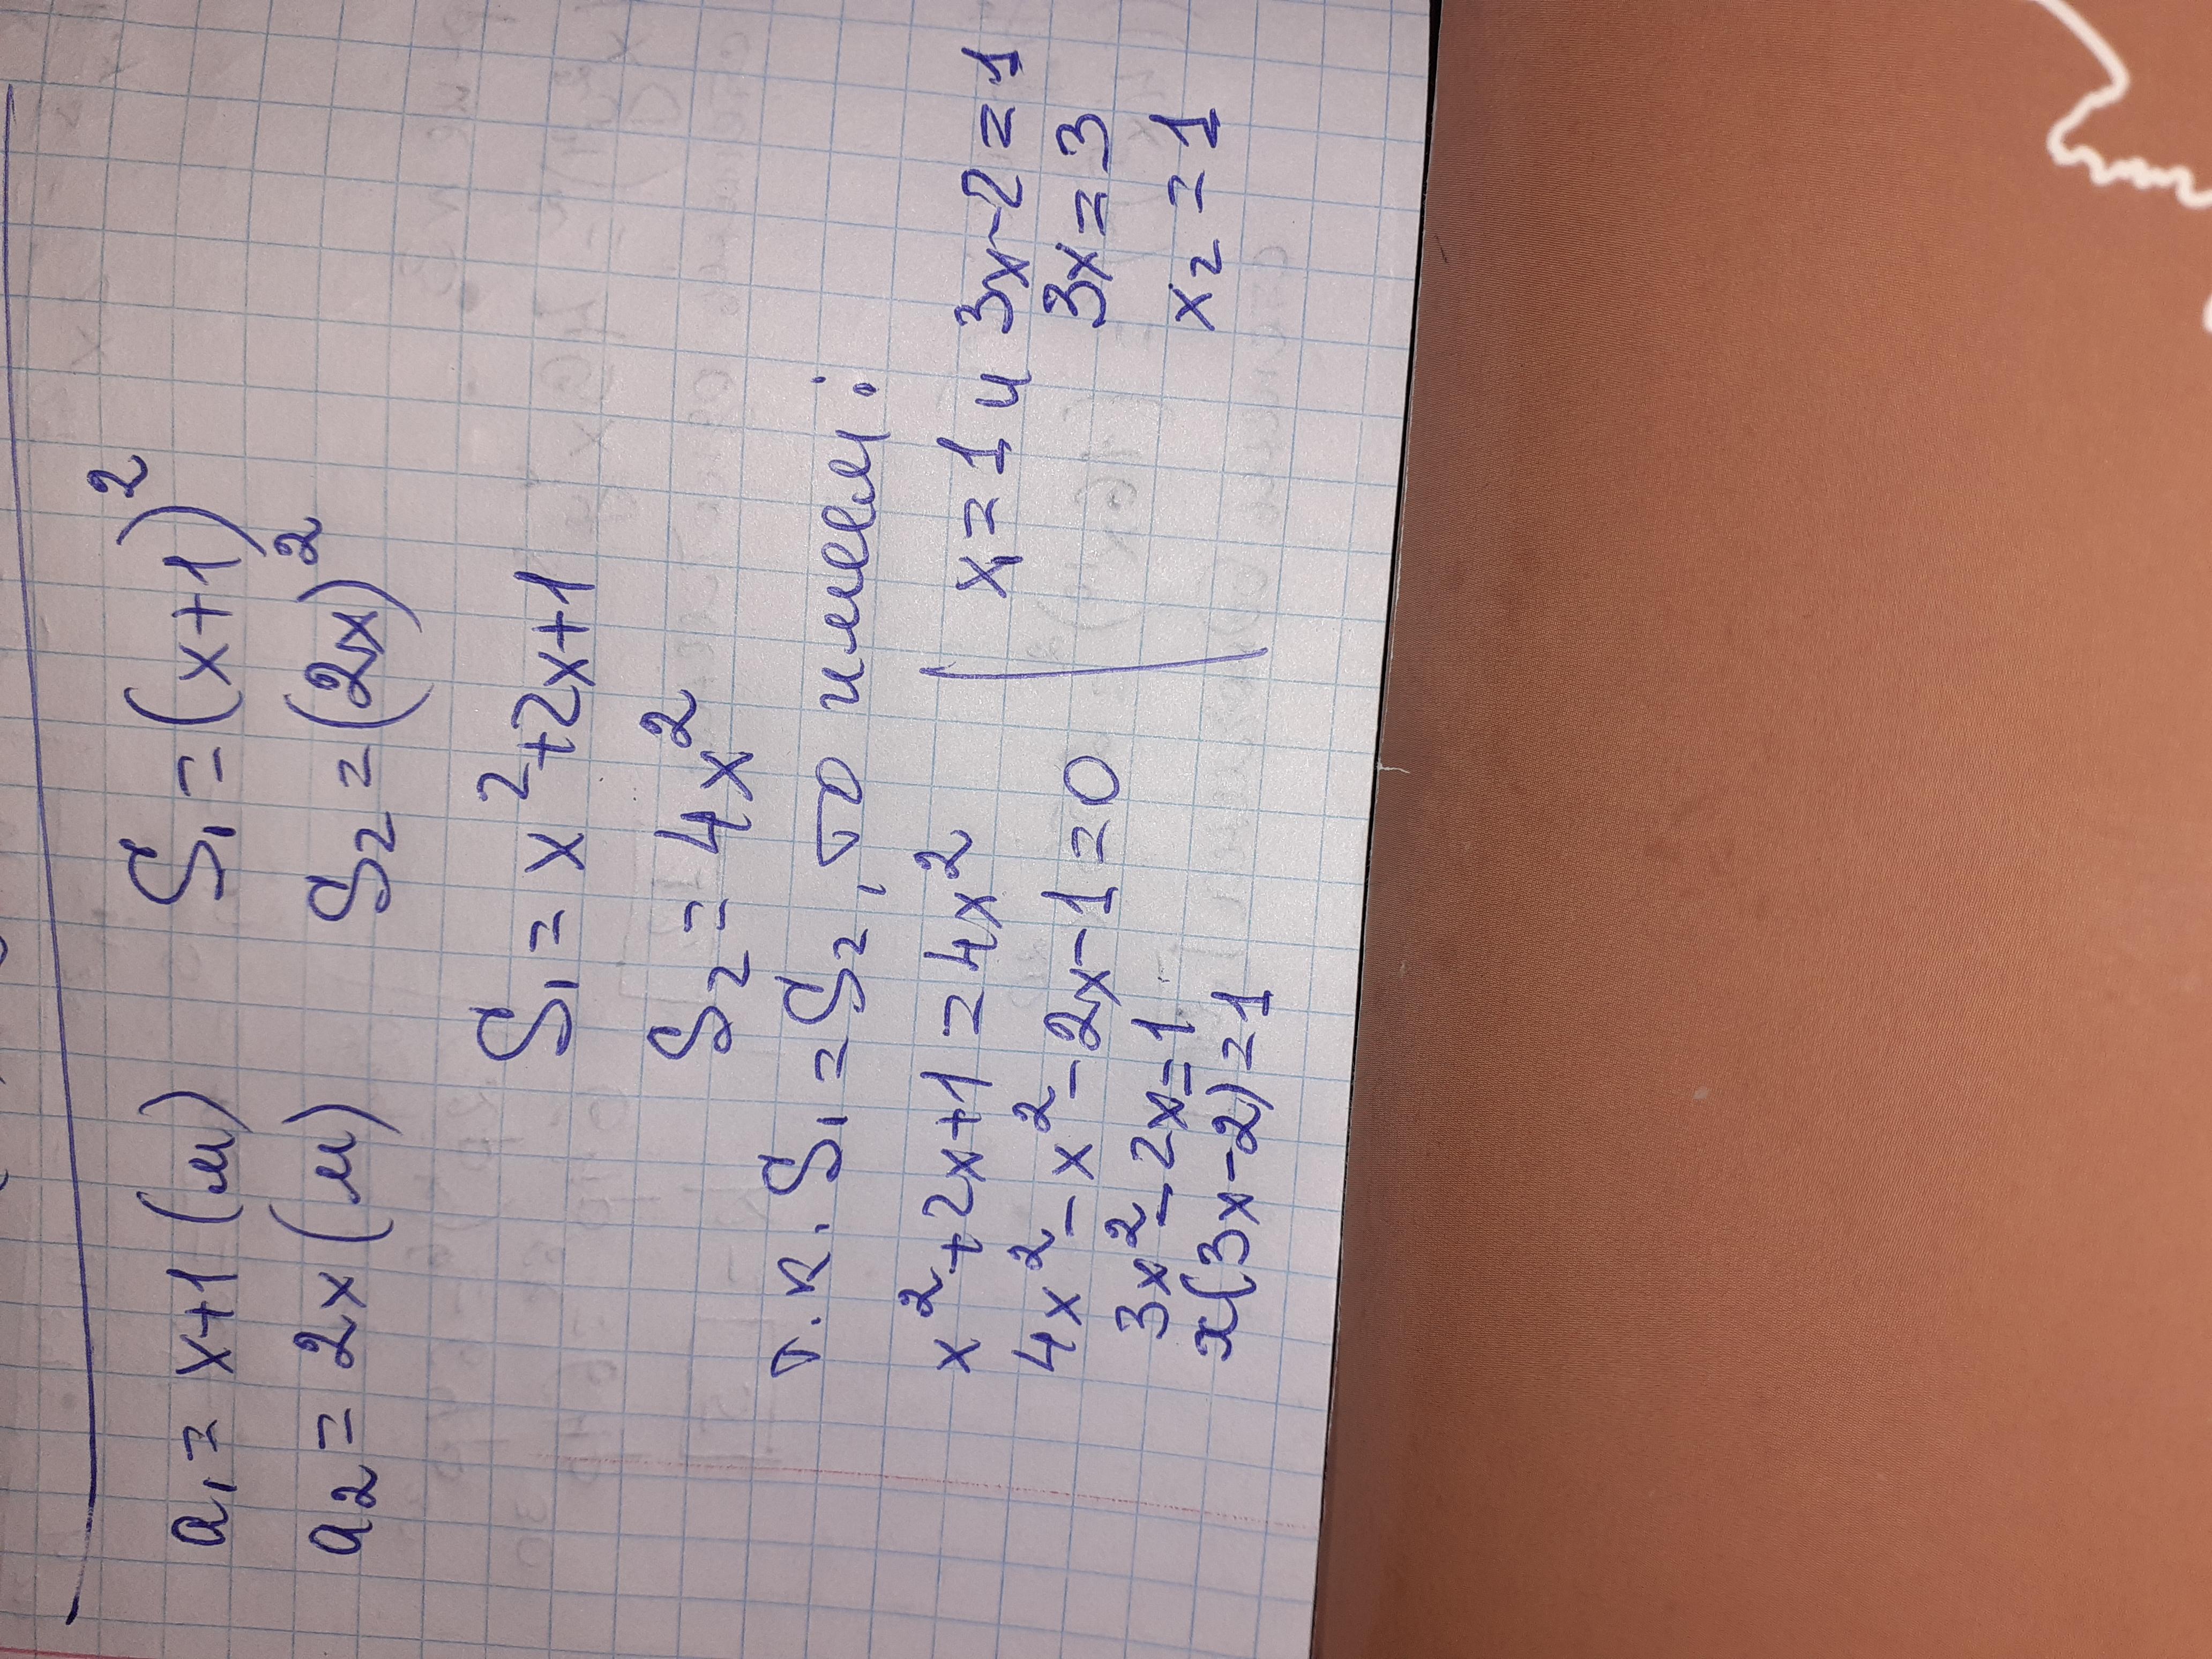 a₁ = x+1 (м) S₁ = (x+1)²
a₂ = 2x (м) S₂ = (2x)²
S₁ = x²+2x+1
S₂ = 4x²
т.к. S₁ = S₂, то имеем:
x²+2x+1 = 4x²
4x²-x²-2x-1=0
3x²-2x=1
x(3x-2)=1
x₁=1 и 3x-2=1
3x=3
x₂=1